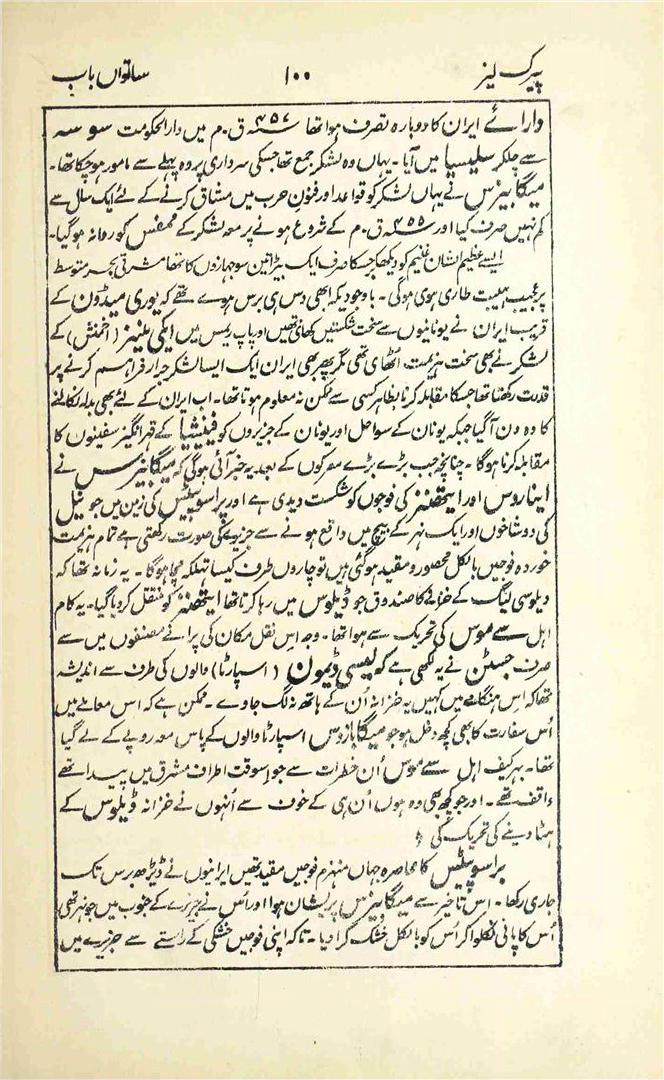 پیرک لیز ۱۰۰ ساتواں باب
دارائے ایران کا دوبارہ تصرف ہوا تھا ۴۵۷؁ ق۔م میں دارالحکومت سوسہ
سے چلکر سلیسیا میں آیا۔ یہاں وہ لشکر جمع تھا جسکی سرداری پر وہ پہلے سے مامور ہوچکا تھا۔
میگابیزس نے یہاں لشکر کو قواعد اور فنونِ حرب میں مشاق کرنے کے لئے ایک سال سے
کم نہیں صرف کیا اور ۴۵۵؁ ق۔م کے شروع ہونے پر معہ لشکر کے ممفس کو روانہ ہوگیا۔
ایسے عظیم الشان غنیم کو دیکھا جسکا صرف ایک بیڑا تین سو جہازوں کا تھا مشرقی بحر متوسط
پر عجیب ہیبت طاری ہوی ہوگی۔ باوجودیکہ ابھی دس ہی برس ہوے تھے کہ یوری میڈون کے
قریب ایران نے یونانیوں سے سخت شکستیں کھائی تھیں اور پاپ ریمس میں ایکی مینیز (اخمنش) کے
لشکر نے بھی سخت ہزیمت اٹھای تھی مگر پھر بھی ایران ایک ایسا لشکر جرار فراہم کرنے پر
قدرت رکھتا تھا جسکا مقابلہ کرنا بظاہر کسی سے ممکن نہ معلوم ہوتا تھا۔ اب ایران کے لئے بھی بدلہ نکالنے
کا وہ دن آگیا جبکہ یونان کے سواحل اور یونان کے جزیروں کو فینیشیا کے قہر انگیز سفینوں کا
مقابلہ کرنا ہوگا۔ چنانچہ جب بڑے بڑے معرکوں کے بعد یہ خبر آئی ہوگی کہ میگابیزس نے
ایناروس اور ایتھنز کی فوجوں کو شکست دیدی ہے اور پراسوپیٹس کی زمین میں جو نیل
کی دو شاخوں اور ایک نہر کے بیچ میں واقع ہونے سے جزیرہ کی صورت رکھتی ہے تمام ہزیمت
خوردہ فوجیں بالکل محصور و مقید ہوگئی ہیں تو چاروں طرف کیسا تہلکہ مچا ہوگا۔ یہ زمانہ تھا کہ
دیلوسی لیگ کے خزانے کا صندوق جو ڈیلوس میں رہا کرتا تھا ایتھنز کو منتقل کردیا گیا۔ یہ کام
اہل سے موس کی تحریک سے ہوا تھا۔ وجہ اس نقل مکان کی پرانے مصنفوں میں سے
صرف جسٹن نے یہ لکھی ہے کہ لیسی ڈیمون (اسپارٹا) والوں کی طرف سے اندیشہ
تھا کہ اس ہنگامے میں کہیں یہ خزانہ اُن کے ہاتھ نہ لگ جاوے۔ ممکن ہے کہ اس معاملے میں
اُس سفارت کا بھی کچھ دخل ہو جو میگابازوس اسپارٹا والوں کے پاس معہ روپے کے لے گیا
تھا۔ بہر کیف اہل سے موس اُن خطرات سے جو اسوقت اطراف مشرق میں پیدا تھے
واقف تھے۔ اور جو کچھ بھی وہ ہوں اُن ہی کے خوف سے اُنہوں نے خزانہ ڈیلوس کے
ہٹا دینے کی تحریک کی ؛
پراسوپیٹس کا محاصرہ جہاں منہزم فوجیں مقید تھیں ایرانیوں نے ڈیڑھ برس تک
جاری رکھا۔ اس تاخیر سے میگابیزس پریشان ہوا اور اُس نے جزیرے کے جنوب میں جو نہر تھی
اُس کا پانی نکلوا کر اُس کو بالکل خشک کرا دیا۔ تاکہ اپنی فوجیں خشکی کے راستے سے جزیرے میں